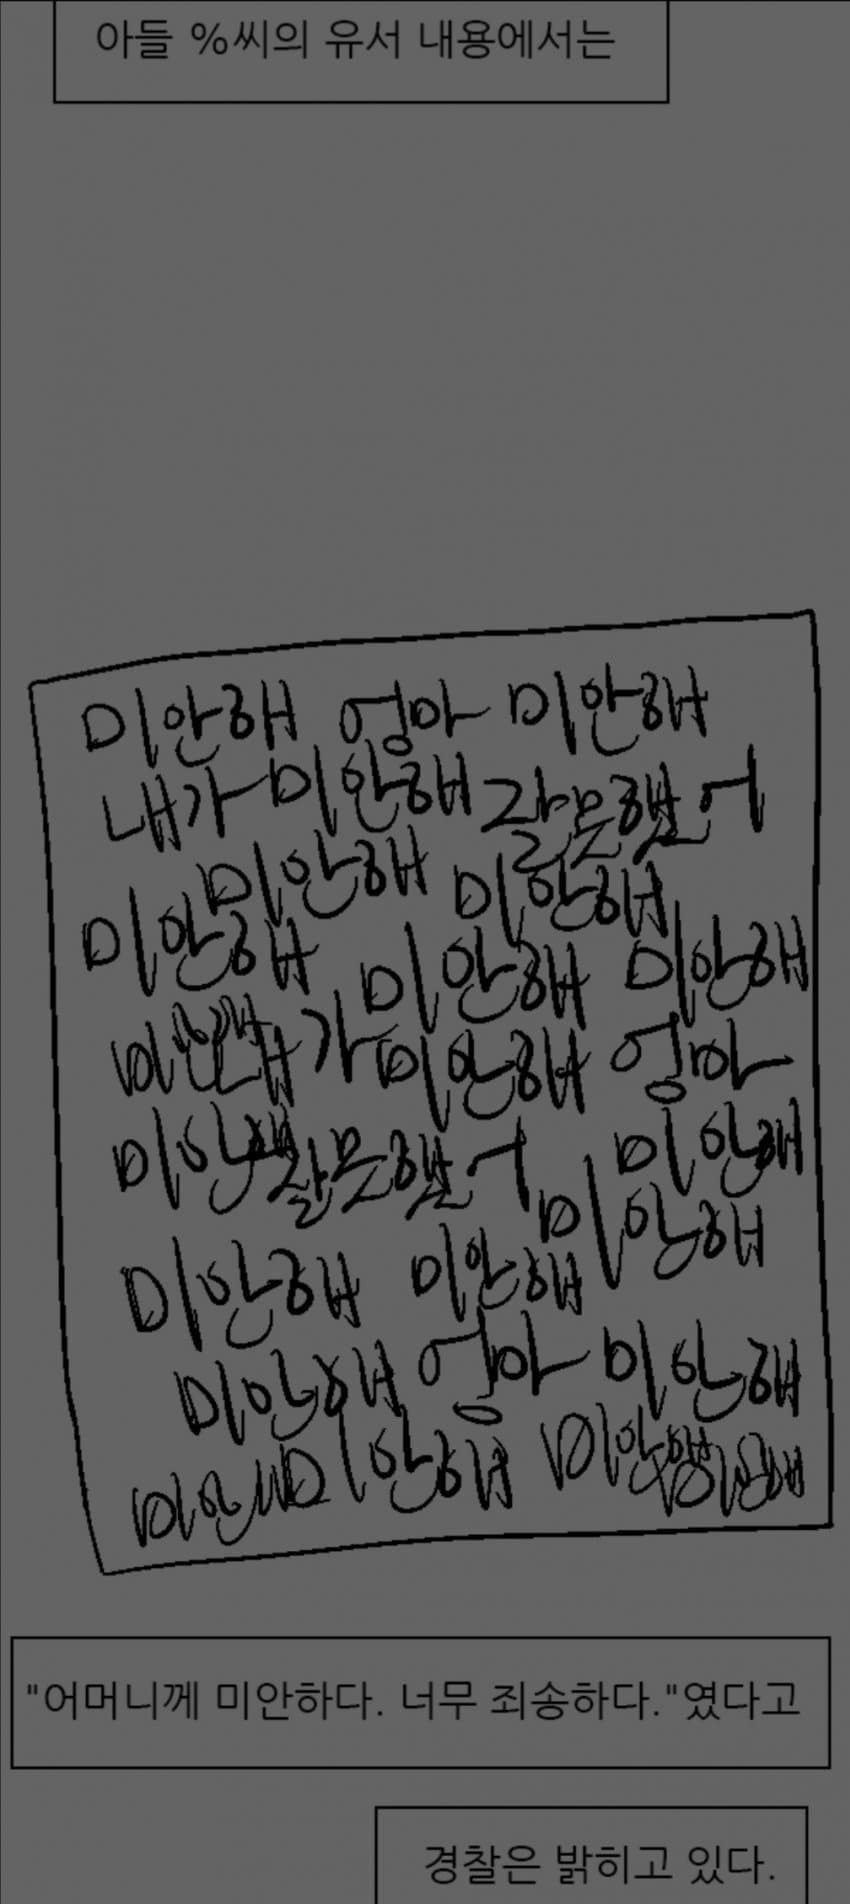 아들 %씨의 유서 내용에서는
미안해 엄마 미안해
내가 미안해 잘못했어
미안해 미안해
미안해 미안해 미안해
가 미안해 엄마
잘못했어 미안해
미안해
미안해 미안해
미안해 엄마 미안해
미안해
"어머니께 미안하다. 너무 죄송하다."였다고
경찰은 밝히고 있다.